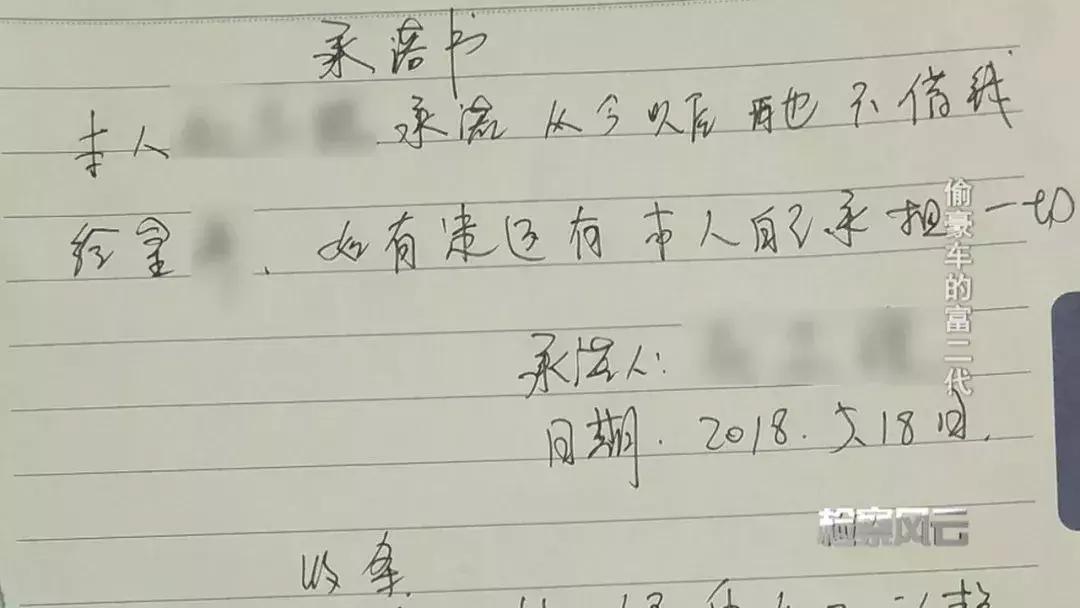 承诺书
本人 承诺 从今以后 再也不借钱
给金 、如有类似有本人自己承担一切
承诺人:
日期. 2018. 5.18日.
收条
偷豪车的富二代
检察风云